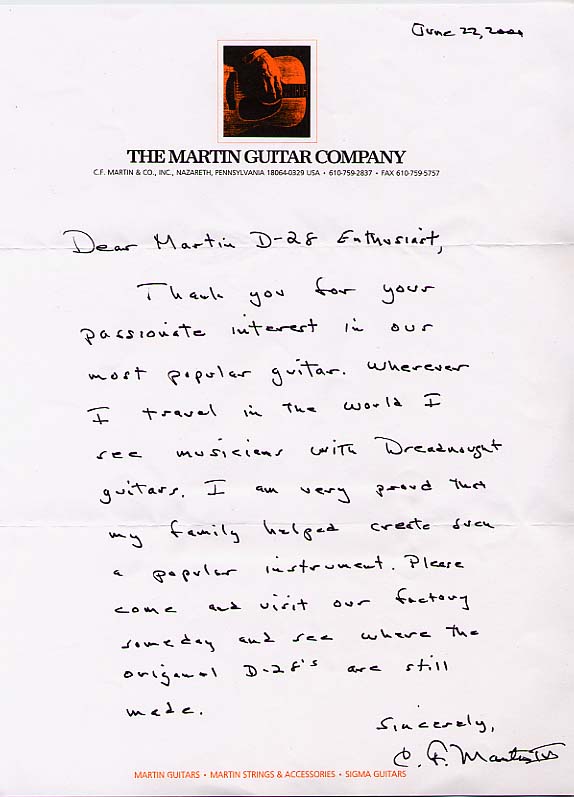 June 22, 2001
THE MARTIN GUITAR COMPANY
C.F. MARTIN & CO., INC., NAZARETH, PENNSYLVANIA 18064-0329 USA • 610-759-2837 • FAX 610-759-5757
Dear Martin D-28 Enthusiast,
Thank you for your
passionate interest in our
most popular guitar. Wherever
I travel in the world I
see musicians with Dreadnought
guitars. I am very proud that
my family helped create such
a popular instrument. Please
come and visit our factory
someday and see where the
original D-28's are still
made.
Sincerely,
C. F. Martin IV
MARTIN GUITARS • MARTIN STRINGS & ACCESSORIES • SIGMA GUITARS